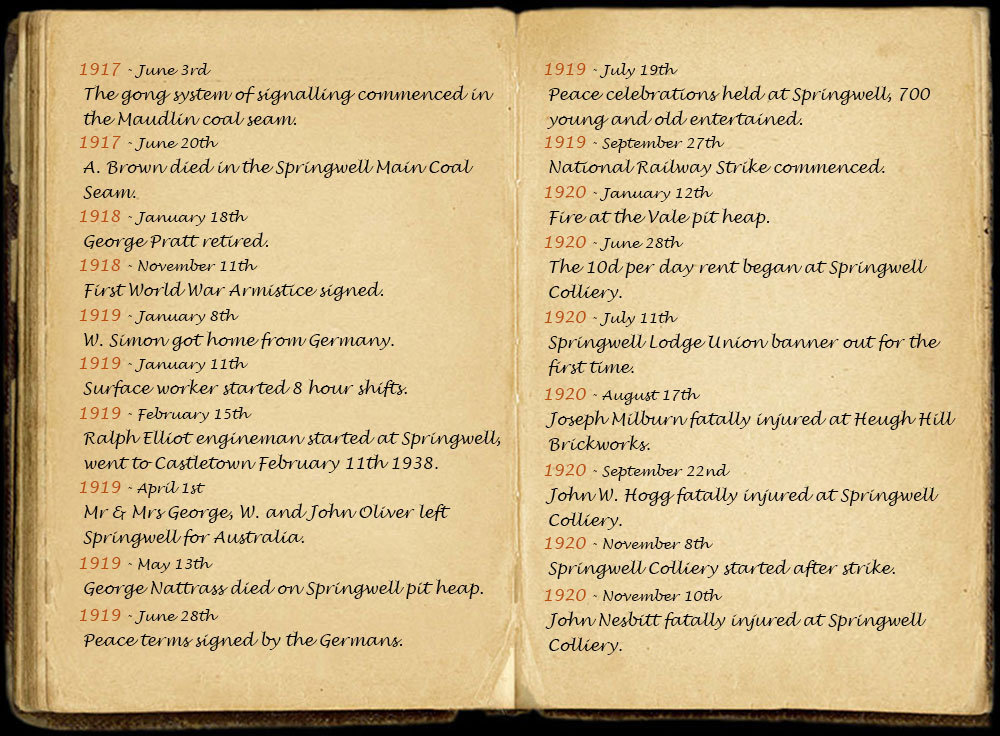 1917 - June 3rd
The gong system of signalling commenced in
the Maudlin coal seam.
1917 - June 20th
A. Brown died in the Springwell Main Coal
Seam.
1918 - January 18th
George Pratt retired.
1918 - November 11th
First World War Armistice signed.
1919 - January 8th
W. Simon got home from Germany.
1919 - January 11th
Surface worker started 8 hour shifts.
1919 - February 15th
Ralph Elliot engineman started at Springwell,
went to Castletown February 11th 1938.
1919 - April 1st
Mr & Mrs George, W. and John Oliver left
Springwell for Australia.
1919 - May 13th
George Nattrass died on Springwell pit heap.
1919 - June 28th
Peace terms signed by the Germans.
1919 - July 19th
Peace celebrations held at Springwell, 700
young and old entertained.
1919 - September 27th
National Railway Strike commenced.
1920 - January 12th
Fire at the Vale pit heap.
1920 - June 28th
The 10d per day rent began at Springwell
Colliery.
1920 - July 11th
Springwell Lodge Union banner out for the
first time.
1920 - August 17th
Joseph Milburn fatally injured at Heugh Hill
Brickworks.
1920 - September 22nd
John W. Hogg fatally injured at Springwell
Colliery.
1920 - November 8th
Springwell Colliery started after strike.
1920 - November 10th
John Nesbitt fatally injured at Springwell
Colliery.